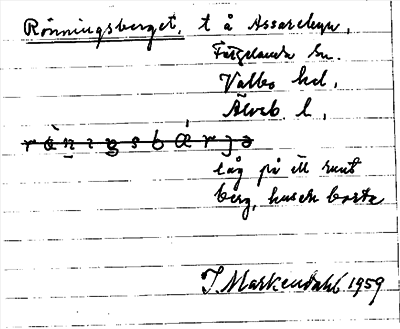 Rönningsberget, t å Assarebyn,
Färgelanda sn.
Valbo hd,
Älvsb l,
låg på ett runt
berg, husen borta
J. Markendahl 1959